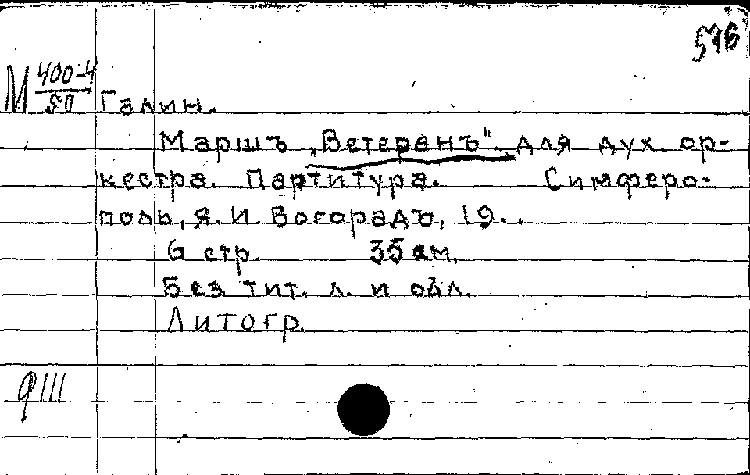 576
М 400-4
50 Галин.
Маршъ „Ветеранъ" для дух. ор-
кестра. Партитура. Симферо-
поль, Я. И. Вогорадъ, 19..
6 стр. 35 см.
Без тит. л. и обл.
Литогр.